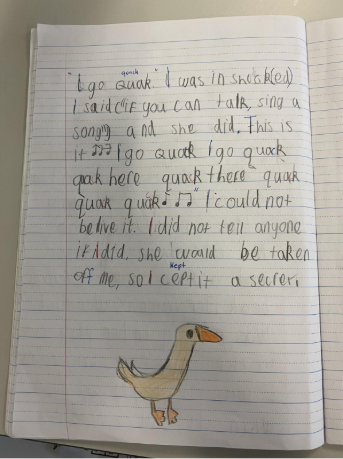 quack
"I go quak." I was in shock(ed)
I said "if you can talk, sing a
song" and she did. This is
it ♫♫ I go quak I go quack
quak here quack there quack
quak quak ♩♫" I could not
belive it. I did not tell anyone
if I did, she would be taken
kept
off me, so I cept it a secret.